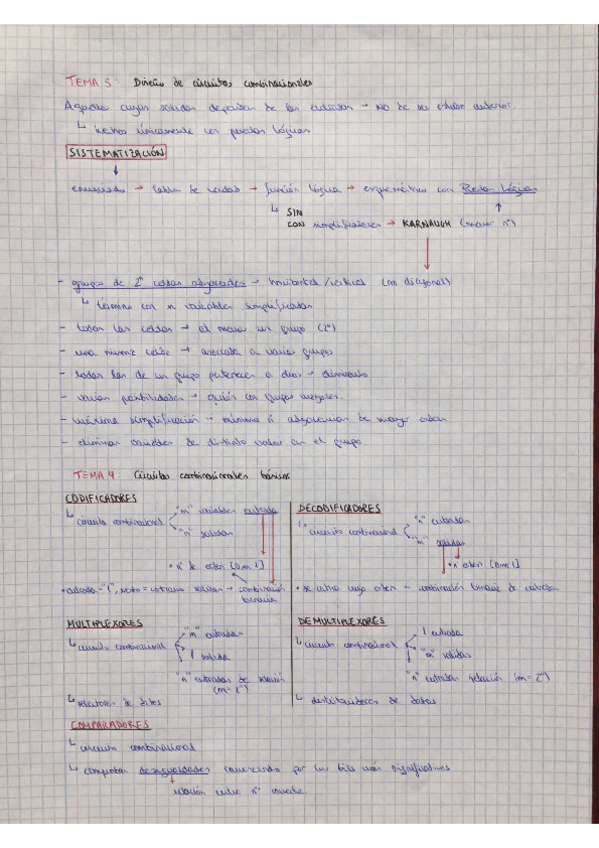 TEMA 3: Diseño de circuitos combinacionales
Aquellos cuyas salidas dependen de las entradas → no de su estado anterior.
↳ hechos únicamente con puertas lógicas
SISTEMATIZACIÓN
enunciado → tabla de verdad → función lógica → esquemático con Puertas Lógicas
↳ SIN
CON simplificaciones → KARNAUGH (menor nº)
- grupos de 2ⁿ celdas adyacentes → horizontal/vertical (no diagonal)
↳ término con n variables simplificadas
- todas las celdas → al menos un grupo (2ⁿ)
- una misma celda → varios grupos
- todas las de un grupo pertenecen a otros → eliminarlo
- varias posibilidades → opción con grupos mayores.
- máxima simplificación → mínimo nº adyacencias de mayor orden
- eliminar variables de distinto valor en el grupo.
TEMA 4 Circuitos combinacionales básicos
CODIFICADORES
↳ circuito combinacional
"m" variables entrada
"n" salidas
• nº de orden [0, m-1]
• activada="1", resto= → combinación
binaria
DECODIFICADORES
↳ circuito combinacional
"n" entradas
"m" salidas
• nº orden [0, m-1]
• se activa cuyo orden = combinación binaria de entradas
MULTIPLEXORES
↳ circuito combinacional
"m" entradas
1 salida
"n" entradas de selección
(m=2ⁿ)
↳ selectores de datos
DEMULTIPLEXORES
↳ circuito combinacional
1 entrada
"m" salidas
"n" entradas selección (m=2ⁿ)
↳ distribuidores de datos
COMPARADORES
↳ circuito combinacional
↳ comprueban desigualdades comenzando por los bits más significativos
relación entre nº